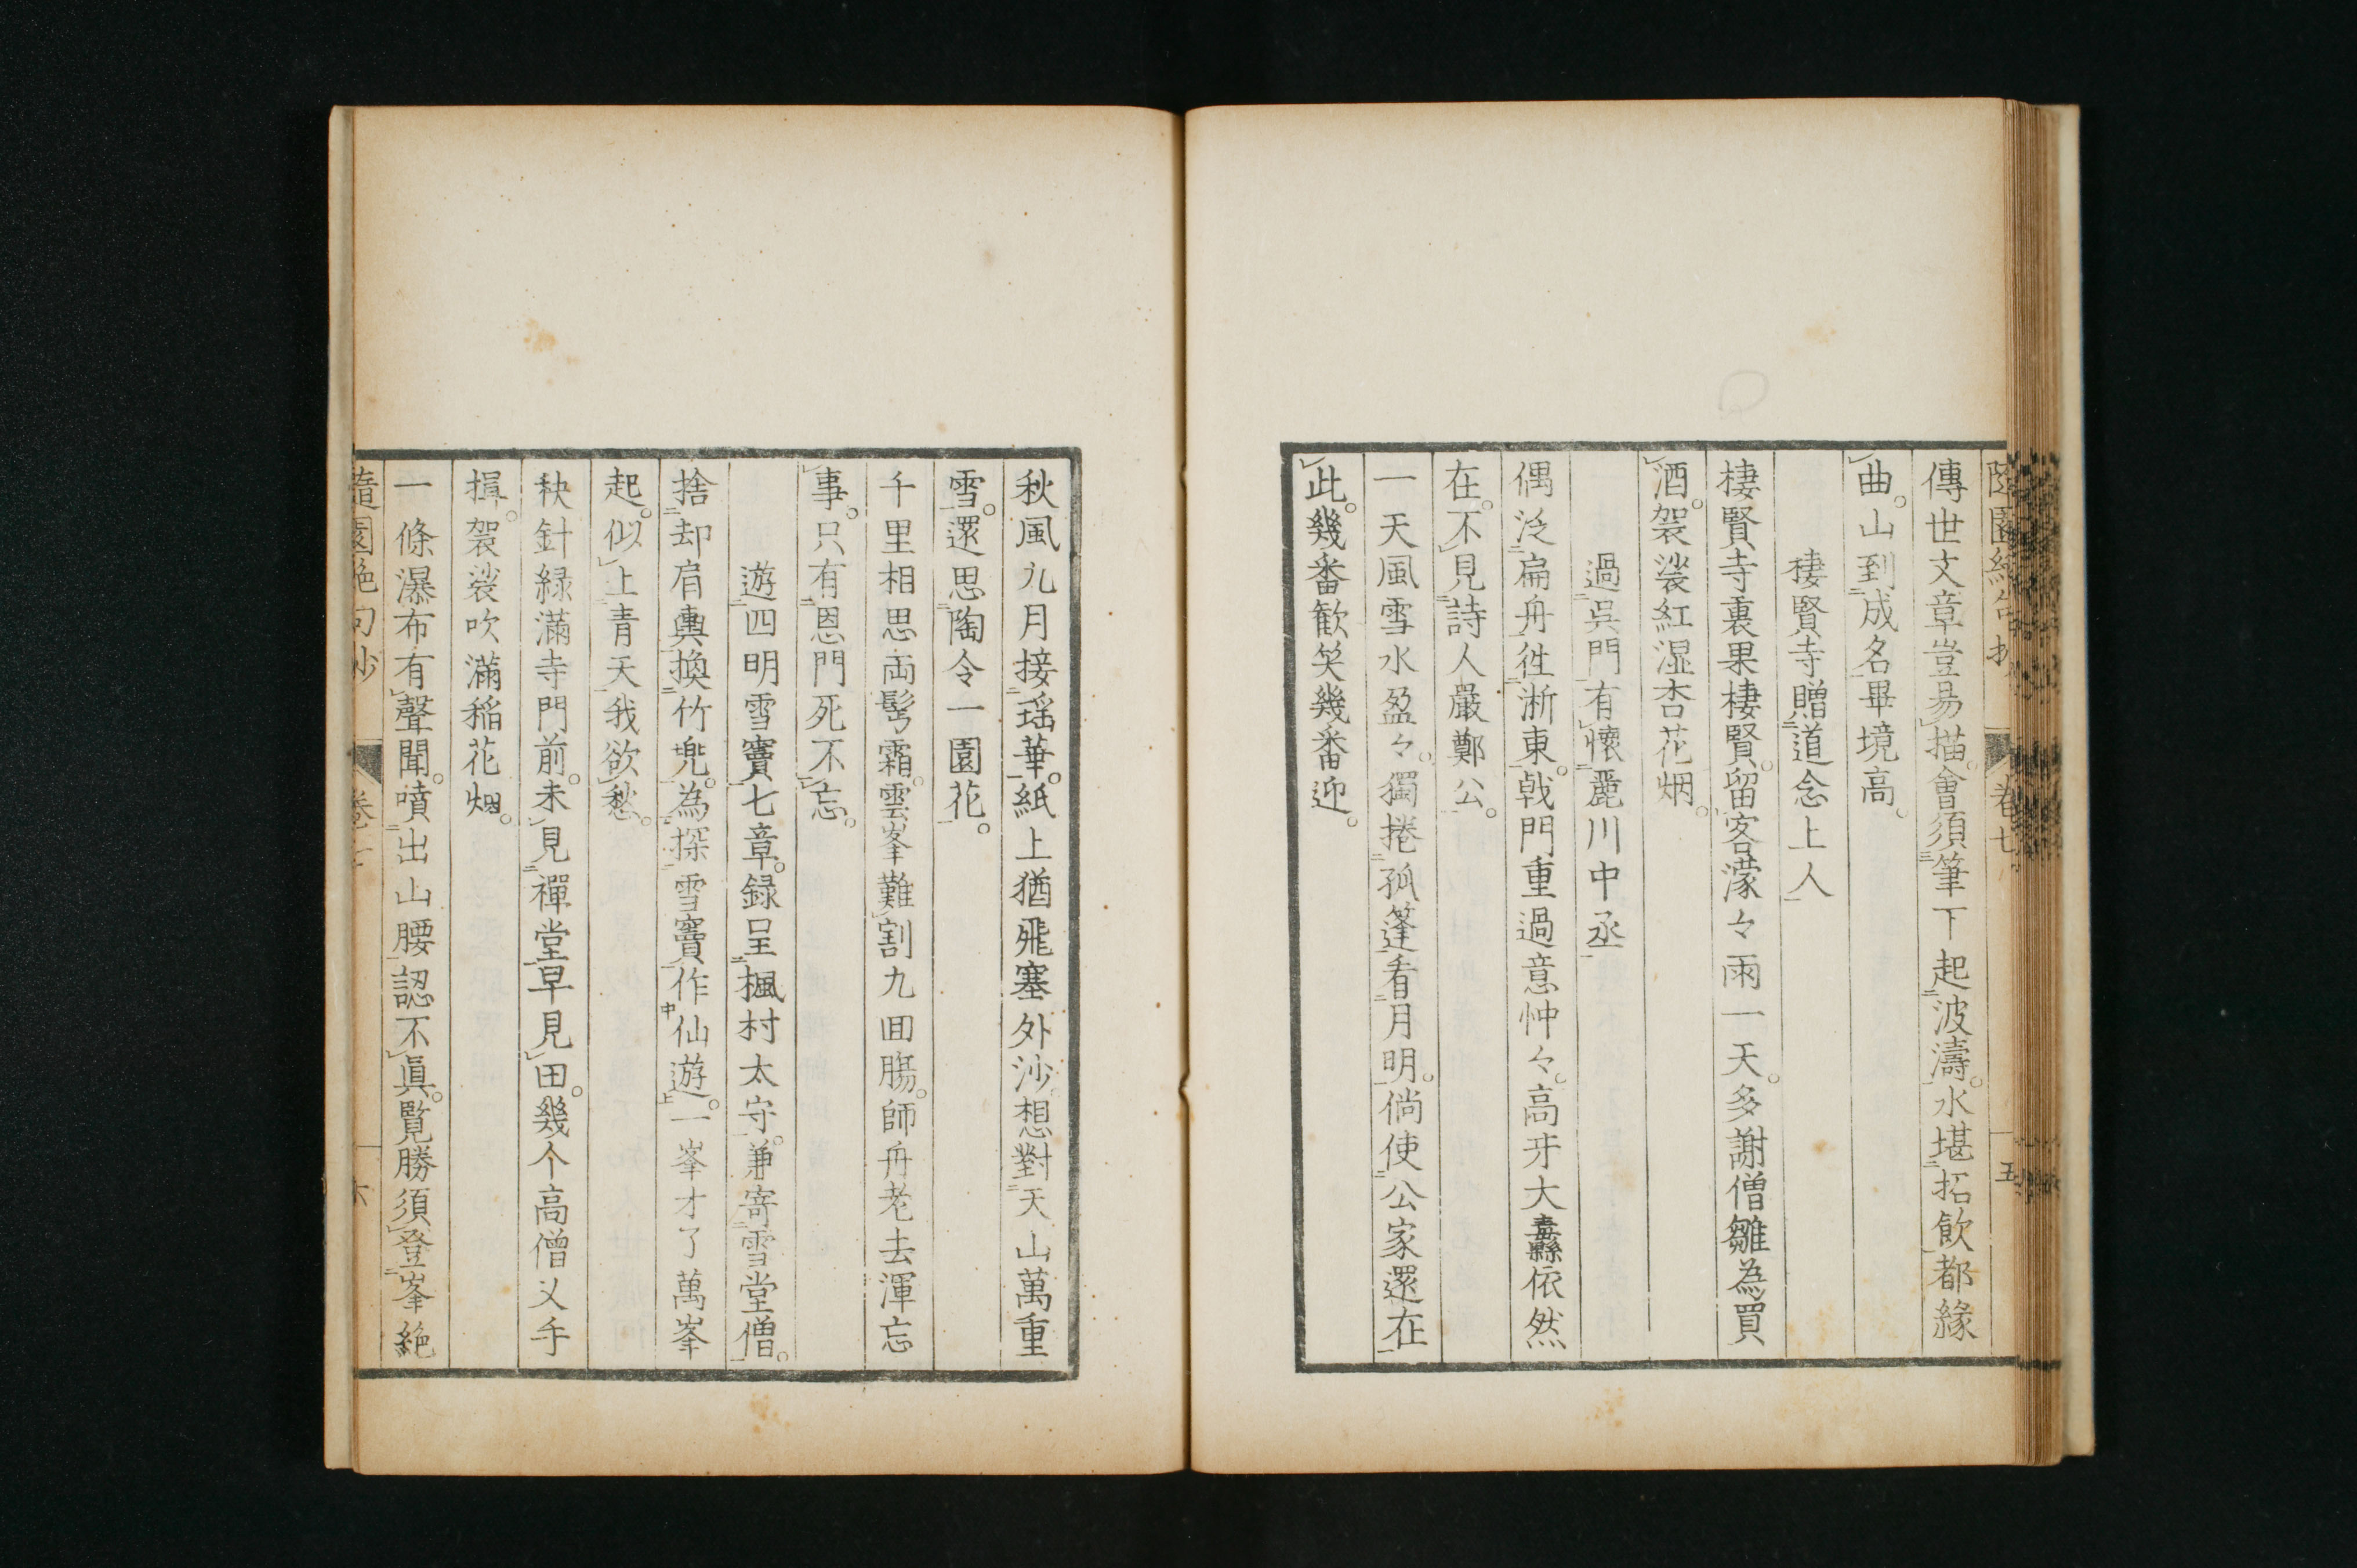 傳世文章豈易描。會須筆下起波濤。水堪拓飲都緣
曲。山到成名畢境高。
棲賢寺贈道念上人
棲賢寺裏果棲賢。留客濛々雨一天。多謝僧雛為買
酒。袈裟紅湿杏花烟。
過吳門有懷麗川中丞
偶泛扁舟徃淅東。戟門重過意忡々。高牙大纛依然
在。不見詩人嚴鄭公。
一天風雪水盈々。獨捲孤篷看月明。倘使公家還在
此。幾番歓笑幾番迎。
秋風九月接瑶華。紙上猶飛塞外沙。想對天山萬重
雪。還思陶令一園花。
千里相思両髩霜。雲峯難割九囬膓。師舟老去渾忘
事。只有恩門死不忘。
遊四明雪竇七章。録呈楓村太守。兼寄雪堂僧。
捨却肩輿換竹兜。為探雪竇作仙遊。一峯才了萬峯
起。似上青天我欲愁。
秧針緑滿寺門前。未見禪堂早見田。幾个高僧乂手
揖。袈裟吹滿稲花烟。
一條瀑布有聲聞。噴出山腰認不真。覧勝須登峯絶
隨園絶句抄
卷七
六